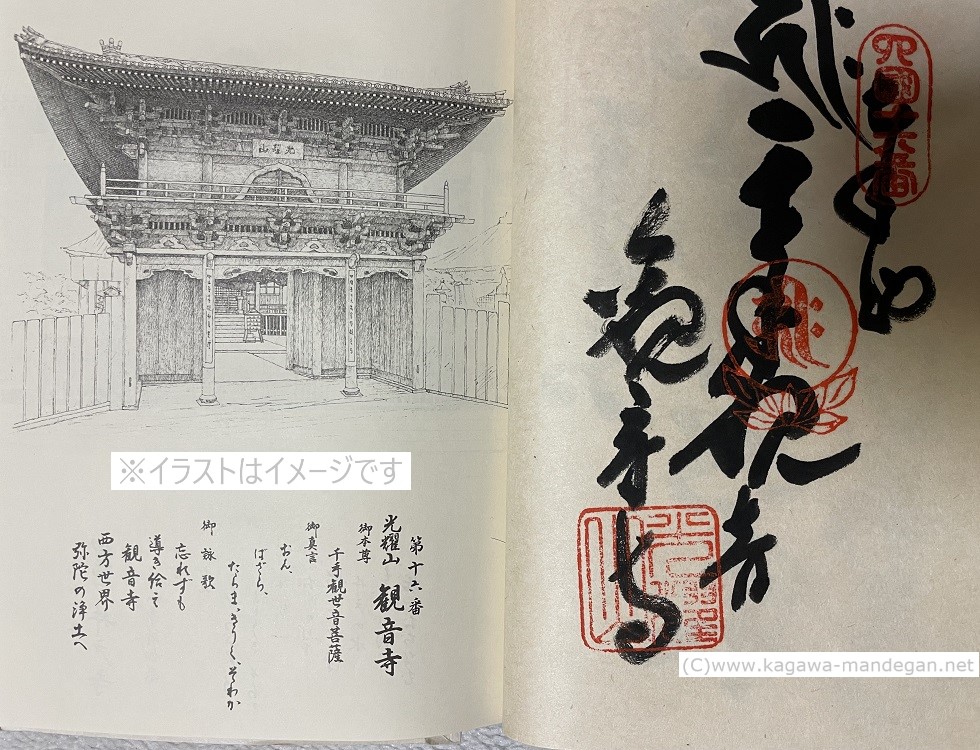 四國十六番
奉納
千手観音
観音寺
※イラストはイメージです
第十六番
光耀山 観音寺
御本尊
千手観世音菩薩
御真言
おん、
ばざら、
たらま、きりく、そわか
御詠歌
忘れずも
導き給え
観音寺
西方世界
弥陀の浄土へ
(C)www.kagawa-mandegan.net